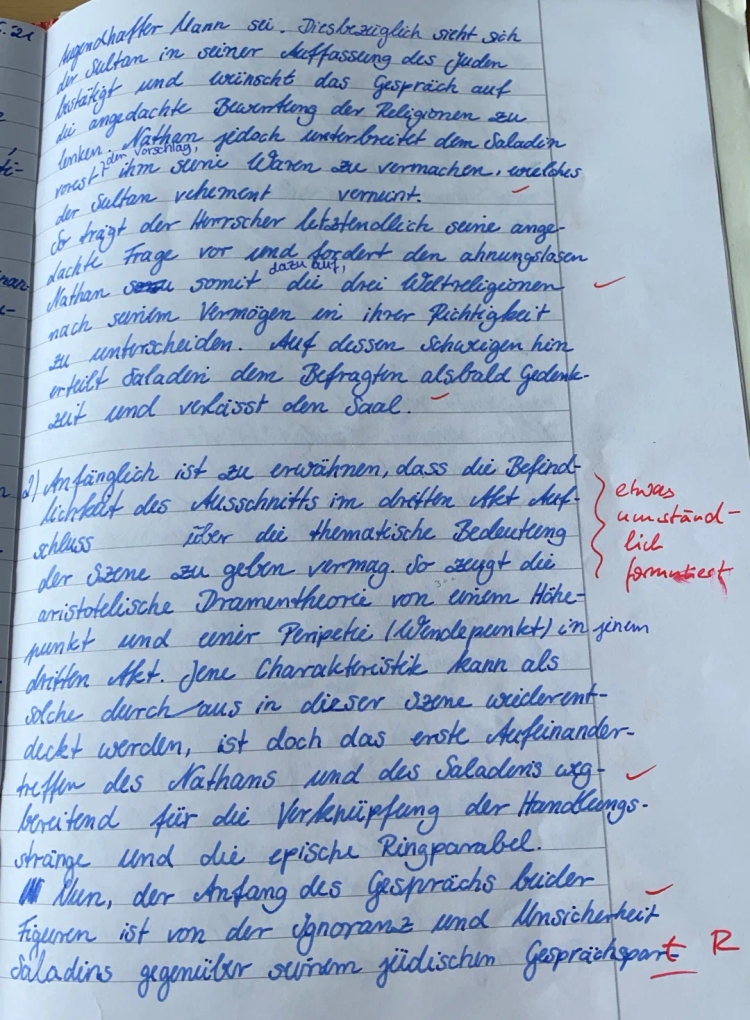 tugendhafter Mann sei. Diesbezüglich sieht sich
der Sultan in seiner Auffassung des Juden
bestätigt und wünscht das Gespräch auf
die angedachte Bewertung der Religionen zu
lenken. Nathan jedoch unterbreitet dem Saladin
den Vorschlag,
vorest, ihm seine Waren zu vermachen, welches
der Sultan vehement verneint.
So trägt der Herrscher letztendlich seine ange-
dachte Frage vor und fordert den ahnungslosen
dazu auf,
Nathan somit die drei Weltreligionen
nach seinem Vermögen in ihrer Richtigkeit
zu unterscheiden. Auf dessen Schweigen hin
erteilt Saladin dem Befragten alsbald Gedenk-
zeit und verlässt den Saal.
2) Anfänglich ist zu erwähnen, dass die Befind-
lichkeit des Ausschnitts im dritten Akt Auf-
schluss über die thematische Bedeutung
der Szene zu geben vermag. So zeugt die
aristotelische Dramentheorie von einem Höhe-
punkt und einer Peripetie (Wendepunkt) in jenem
dritten Akt. Jene Charakteristik kann als
solche durchaus in dieser Szene wiederent-
deckt werden, ist doch das erste Aufeinander-
treffen des Nathans und des Saladins weg-
bereitend für die Verknüpfung der Handlungs-
stränge und die epische Ringparabel.
Nun, der Anfang des Gesprächs beider
Figuren ist von der Ignoranz und Unsicherheit
Saladins gegenüber seinem jüdischen Gesprächspart
etwas
umständ-
lich
formuliert
R